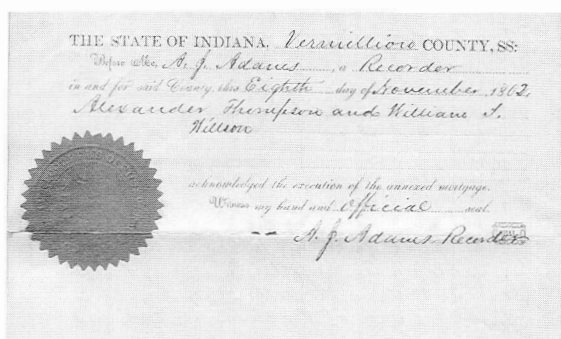 THE STATE OF INDIANA, Vermillion COUNTY, SS:
Before Me, A. J. Adams, a Recorder
in and for said County, this Eighth day of November, 1862,
Alexander Thompson and William T.
Willson
acknowledged the execution of the annexed mortgage.
Witness my hand and Official seal.
A. J. Adams Recorder